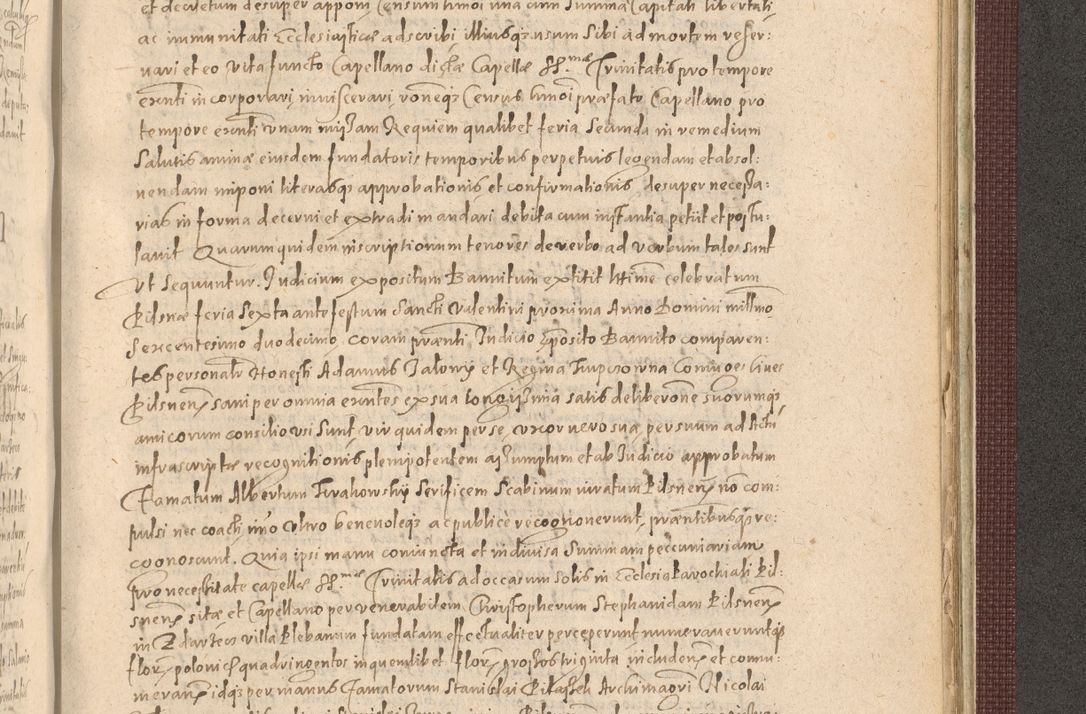 et decretum desuper apponi Censum hmoi una cum Summa Capitali libertati
ac immunitati Ecclesiasticæ adscribi illiusqz usum Sibi ad mortem reser:
vari et eo vita functo Capellano dictæ Capellæ SS.mæ Trinitatis pro tempore
exnti incorporari inviscerari roneqz Census hmoi præfato Capellano pro
tempore exnti unam missam Requiem qualibet feria Secunda in remedium
Salutis animæ eiusdem fundatoris temporibus perpetuis legendam et absol:
vendam imponi literasqz approbationis et confirmationis desuper necessa:
rias in forma decerni et extradi mandari debita cum instantia petiit et postu:
lavit Quarum quidem inscriptionum tenores de verbo ad verbum tales sunt
Ut Sequuntur. Iudicium expositum Bannitum extitit lttime celebratum
Pilsnæ feria Sexta ante festum Sancti Valentini proxima Anno Domini millmo
Sexcentesimo duodecimo, coram prænti Iudicio exposito Bannito comparen:
tes personalr Honesti Adamus Jalowy et Regina conivges Cives
Pilsnen sani per omnia exntes ex sua longissima satis deliberone suorumqz
amicorum consilio usi Sunt vir quidem per se, uxor vero sua per suum ad Actu
infrascriptæ recognitionis plenipotentem assumptum et ab Iudicio approbatum
Famatum Albertum Serificem Scabinum iuratum Pilsnen no com:
pulsi nec coacti imo ultro benevoleqz ac publice recognonerunt, præntibusqz re:
cognoscunt. Quia ipsi manu coniuncta et indivisa Summam peccuniariam
pro necessitate capellæ SS.mæ Trinitatis ad occasum solis in Ecclesia Parochiali Pil:
snen sitæ et Capellano per venerabilem Christopherum Stephanidam Pilsnen
in Zdarzecz villa Plebanum fundatam effectualiter perceperunt numeraveruntqz
floren polonical quadringentos in quemlibet floren grossos triginta includen et comu:
meranen idqz per manus Famatorum Stanislai Archimagri Nicolai